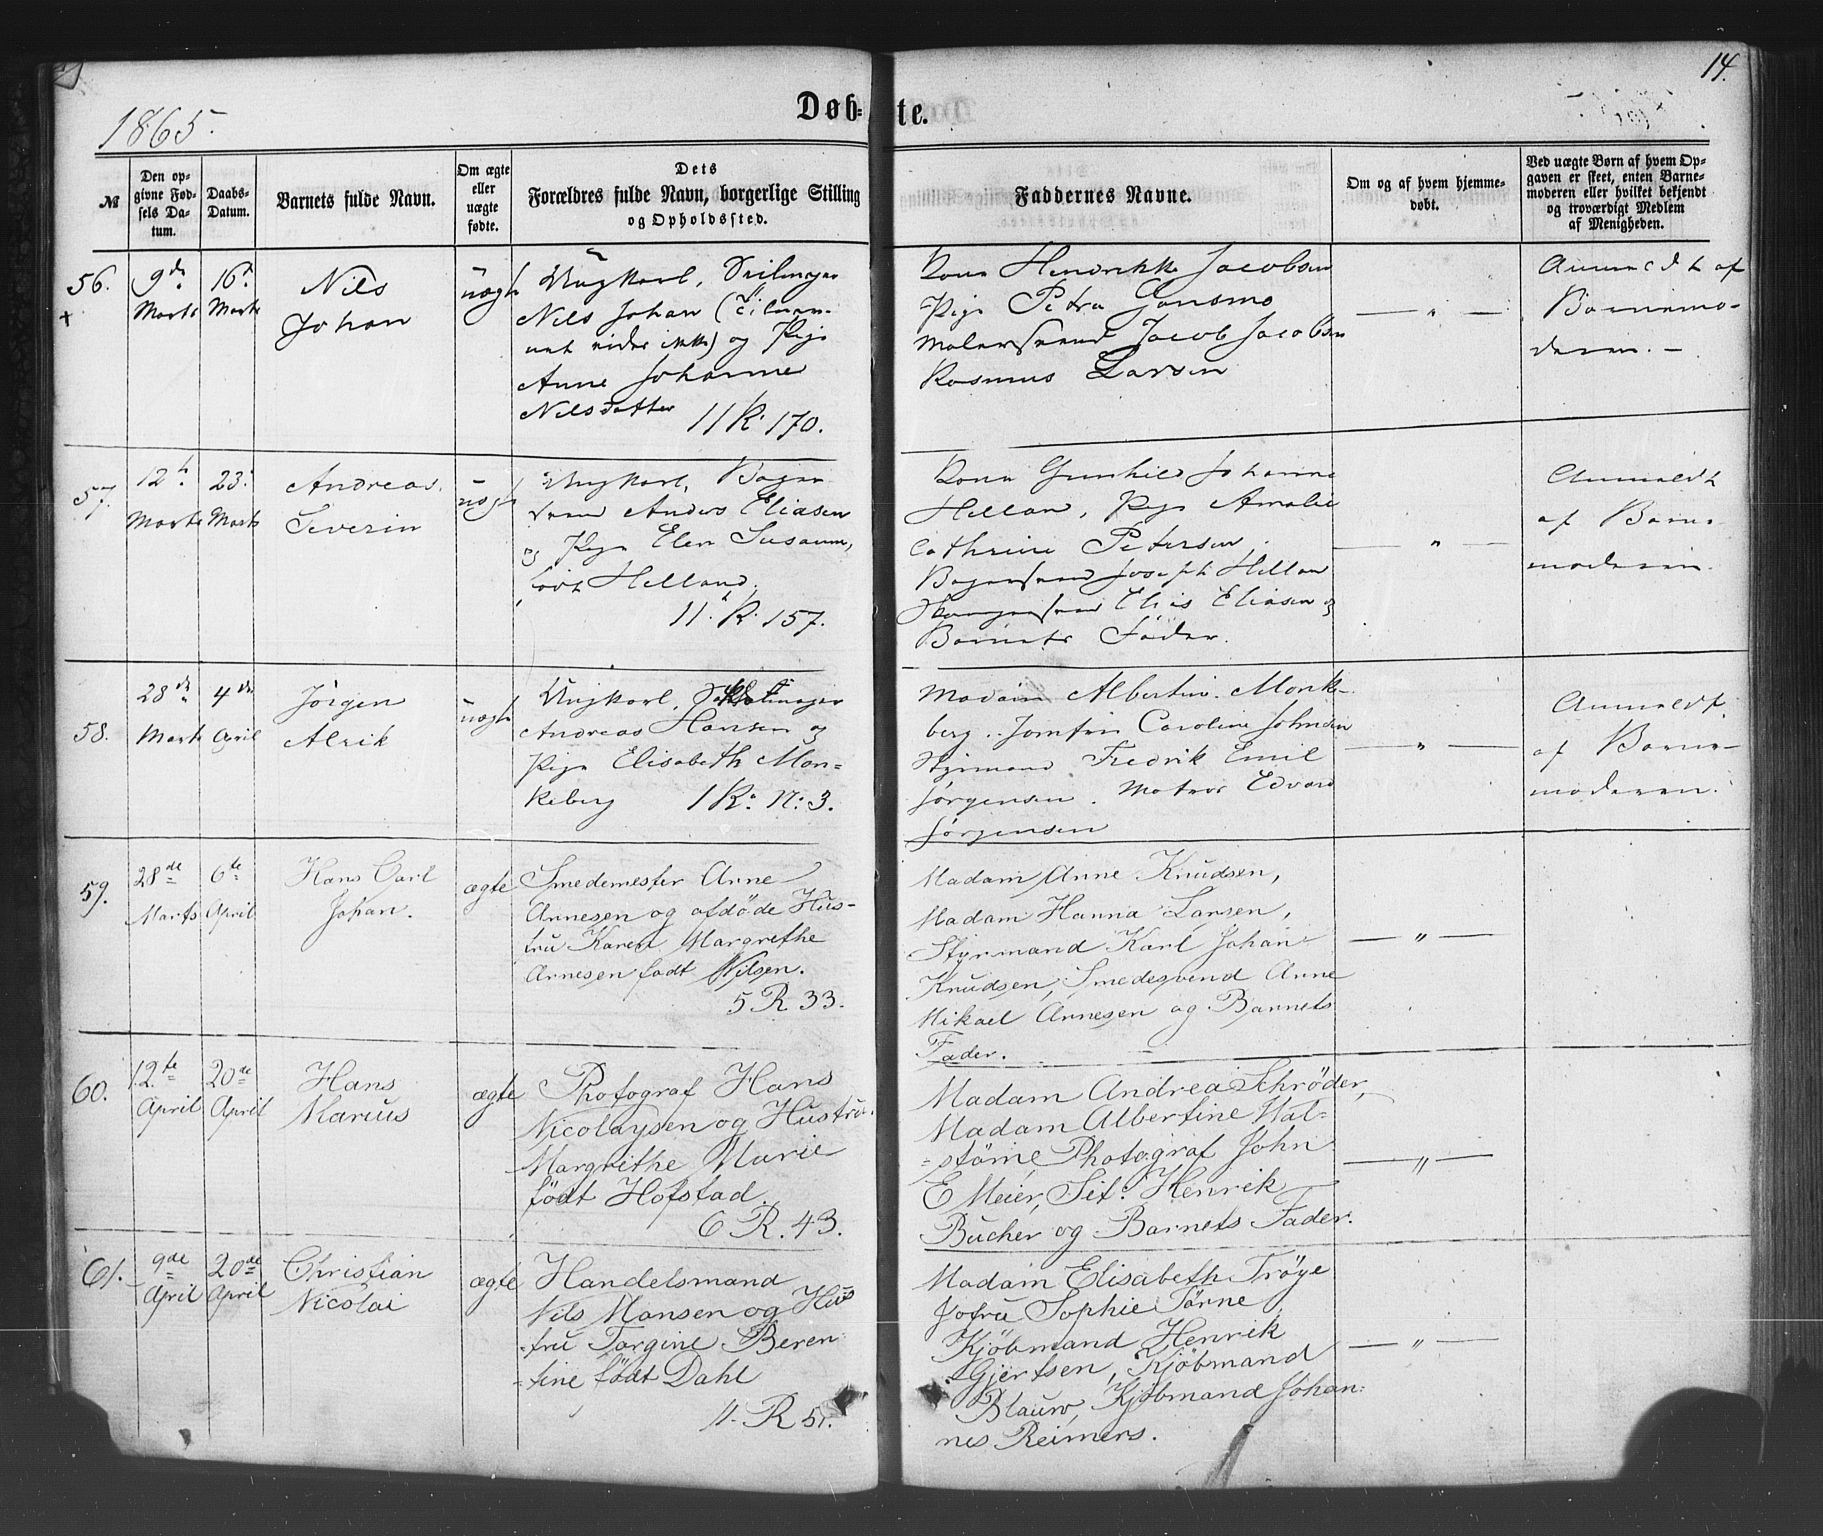 14.
1865.
Døb-te.
№
Den opgivne Fødsels Datum.
Daabs-Datum.
Barnets fulde Navn.
Om ægte eller uægte fødte.
Dets Forældres fulde Navn, borgerlige Stilling og Opholdssted.
Faddernes Navne.
Om og af hvem hjemmedøbt.
Ved uægte Børn af hvem Opgaven er skeet, enten Barnemoderen eller hvilket bekjendt og troværdigt Medlem af Menigheden.
56.
+
9de
Marts
16d
Marts
Nils
Johan
uægte
Ungkarl, Seilmager
Nils Johan (Tilnav-
net vides ikke) og Pige
Anne Johanne
Nilsdatter
11 R. 170.
Kone Henrikke Jacobsen
Pige Petra Gonsmo
Malersvend Jacob Jacobsen
Rasmus Larsen
— " —
Anmeldt af
Barnemo-
deren. —
57.
12t
Marts
23.
Marts
Andreas
Severin
uægte
Ungkarl, Bager
svend Anders Eliasen
og Pige Elen Susanne,
født Helland,
11. R. 157.
Kone Gunhild Johanne
Helland, Pige Amalie
Cathrine Petersen.
Bagersvend Joseph Helland
Elias Eliasen og
Barnets Fader.
— " —
Anmeldt
af Barne
moderen.
58.
28de
Marts
4de
April
Jørgen
Alrik
uægte
Ungkarl,
Andreas Hansen og
Pige Elisabeth Mon-
keberg 1 R. N: 3.
Madam Albertine Monke-
berg.. Jomfru Caroline Johnsen
Styrmand Fredrik Emil
Jørgensen. Matros Edvard
Jørgensen
— " —
Anmeldt
af Barne-
moderen.
59.
28de
Marts
6te
April
Hans Carl
Johan.
ægte
Smedemester Arne
Arnesen og afdøde Hus-
tru Karen Margrethe
Arnesen født Nilsen.
5 R 33.
Madam Anne Knudsen,
Madam Hanna Larsen,
Styrmand Karl Johan
Knudsen, Smedesvend Arne
Mikael Arnesen og Barnets
Fader.
— " —
60.
12te
April
20de
April
Hans
Marius
ægte
Photograf Hans
Nicolaysen og Hustru
Margrethe Marie
født Hofstad.
6 R. 43.
Madam Andrea Schrøder,
Madam Albertine Wal-
-støme Photograf John
E Meier, Sit. Henrik
Bucher og Barnets Fader.
— " —
61.
9de
April
20de
April
Christian
Nicolai
ægte
Handelsmand
Nils Monsen og Hus
-tru Torgine Beren
-tine født Dahl
11. R 51.
Madam Elisabeth Trøye
Jofru Sophie Tørne
Kjöbmand Henrik
Gjertsen, Kjöbmand
Blauw, Kjöbmand Johan-
nes Reimers.
— " —